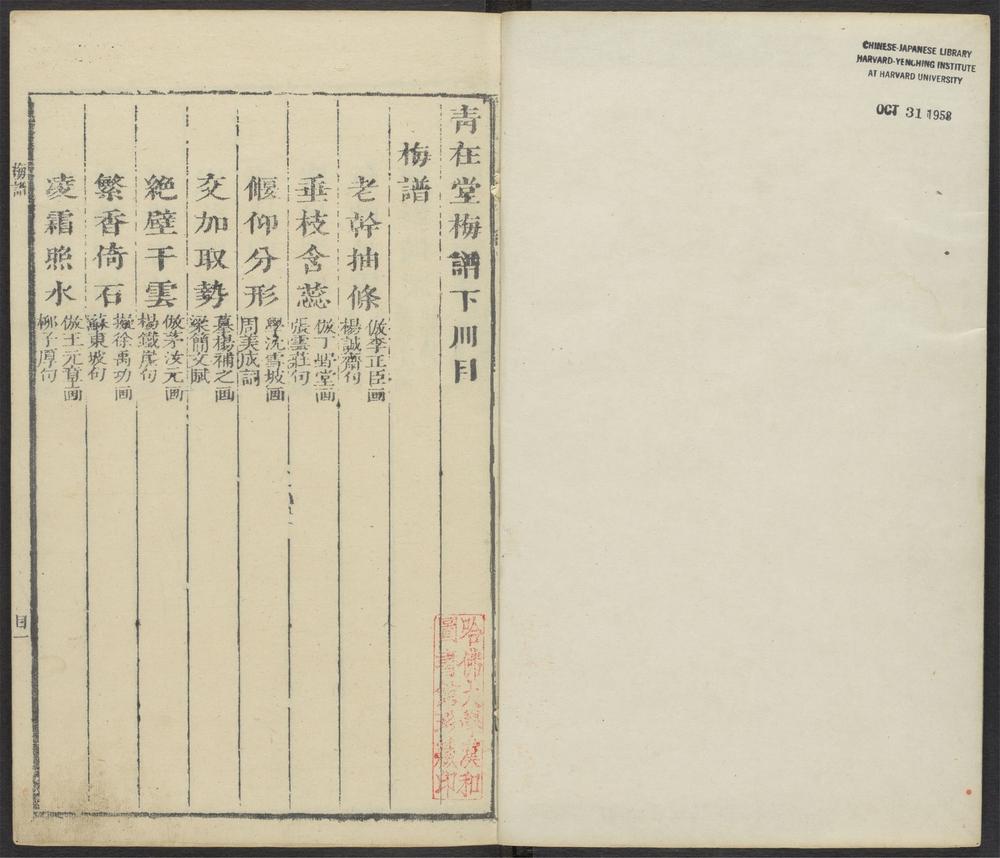 CHINESE-JAPANESE LIBRARY
HARVARD-YENCHING INSTITUTE
AT HARVARD UNIVERSITY
OCT 31 1958
青在堂梅譜下冊目
梅譜
老幹抽條 倣李正臣画 楊誠齋句
垂枝含蕊 倣丁野堂画 張雲莊句
偃仰分形 學沈雪坡画 周美成詞
交加取勢 摹楊補之画 梁簡文賦
絶壁干雲 倣茅汝元画 楊鐵崖句
繁香倚石 擬徐禹功画 蘇東坡句
凌霜照水 倣王元章画 柳子厚句
梅譜
目一
哈佛大學漢和
圖書館珍藏印